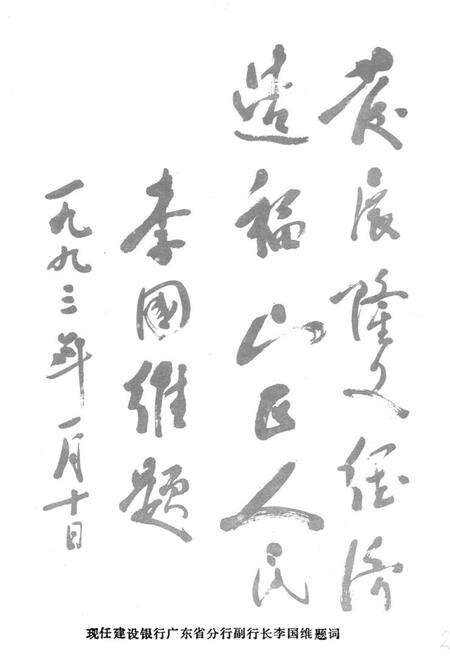 发展隆文经济
造福山区人民
李國维题
一九九三年一月十日
现任建设银行广东省分行副行长李国维题词